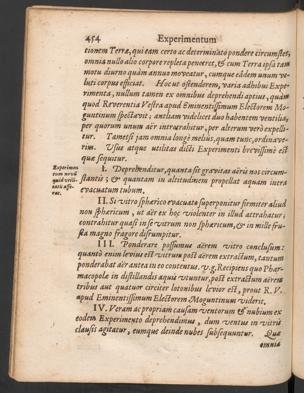 454 Experimentum
tionem Terræ, qui eam certo ac determinato pondere circumstet,
omnia nullo alio corpore repleta penetret, & cum Terra ipsa tam
motu diurno quàm annuo moveatur, cumque eâdem unum ve-
luti corpus efficiat. Hoc ut ostenderem, varia adhibui Expe-
rimenta, nullum tamen ex omnibus deprehendi aptius, quàm
quod Reverentia Vestra apud Eminentissimum Electorem Mo-
guntinum spectavit: antliam videlicet duo habentem ventilia,
per quorum unum aër intrabatur, per alterum verò expelli-
tur. Tametsi jam omnia longè melius, quam tunc, ordinave-
rim. Usus atque utilitas dicti Experimenti brevissimè est
quæ sequitur.
Experimen-
tum novum
quid utili-
tatis affe-
rat.
I. Deprehenditur, quanta sit gravitas aëris nos circum-
stantis; & quantam in altitudinem propellat aquam intra
evacuatum tubum.
II. Si vitro sphærico evacuato superponitur firmiter aliud
non sphæricum, ut aër ex hoc violenter in illud attrahatur,
contrahitur quasi in se vitrum non sphæricum, & in mille fru-
sta magno fragore disrumpitur.
III. Ponderare possumus aërem vitro conclusum:
quantò enim levius est vitrum post aërem extractum, tantum
ponderabat aër antea in eo contentus. v.g. Recipiens quo Phar-
macopolæ in distillandis aquis utuntur, post extractum aërem
tribus aut quatuor circiter lotonibus levior est, prout R. V.
apud Eminentissimum Electorem Moguntinum videris.
IV. Veram ac propriam causam ventorum & nubium ex
eodem Experimento deprehendimus, dum ventus in vitris
clausis agitatur, eumque deinde nubes subsequuntur. Quæ
omnia